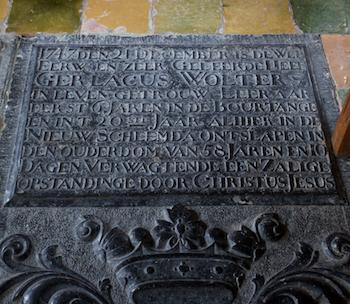 DEN 21 DECEMBER IS DE WEL
EERW: EN ZEER GELEERDE HEER
GERLACUS WOLTER
IN LEVEN GETROUW LEERAAR
EERST JAREN IN DE BOURTANGE
EN INT 20STE JAAR ALHIER IN DE
NIEUW SCHEEMDA ONTSLAPEN IN
DEN OUDERDOM VAN 58 JAREN EN 10
DAGEN VERWAGTENDE EEN ZALIGE
OPSTANDINGE DOOR CHRISTUS JESUS